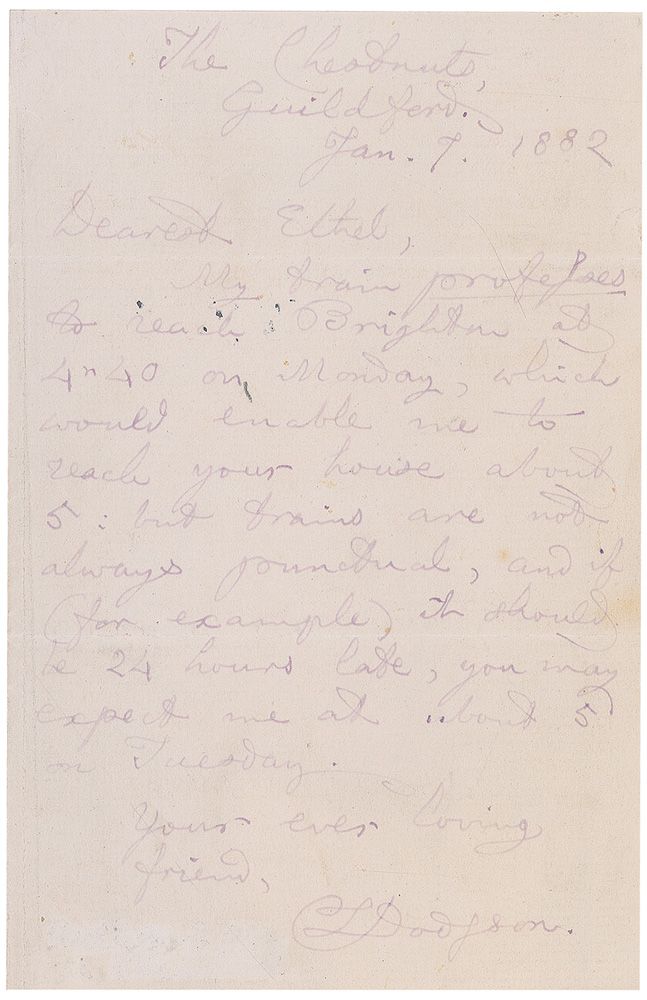 The Chestnuts,
Guildford.
Jan. 7. 1882
Dearest Ethel,
My train professes
to reach Brighton at
4"40 on Monday, which
would enable me to
reach your house about
5: but trains are not
always punctual, and if
(for example) it should
be 24 hours late, you may
expect me at about 5
on Tuesday.
Your ever loving
friend,
CLDodgson.